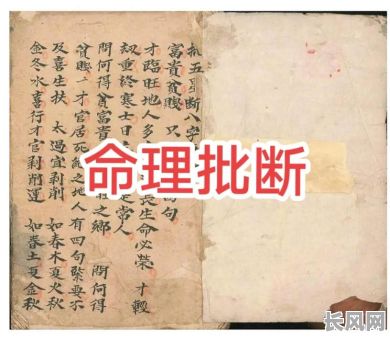 扎五星断八字
富貴貧賤只句
才臨旺地人多長生命必榮才輕
刼重終寒士日定常人
問何得貧富貴旺之鄉問何得
貧賤一才官居死絶之地人有四句緊要不
及喜生扶太過宜剥削如春木夏火秋
金冬水喜行才官剥削運如春土夏金秋
命理批断
长风网